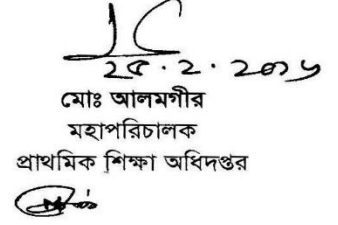 ২৫.২.২০১৬
মোঃ আলমগীর
মহাপরিচালক
প্রাথমিক শিক্ষা অধিদপ্তর